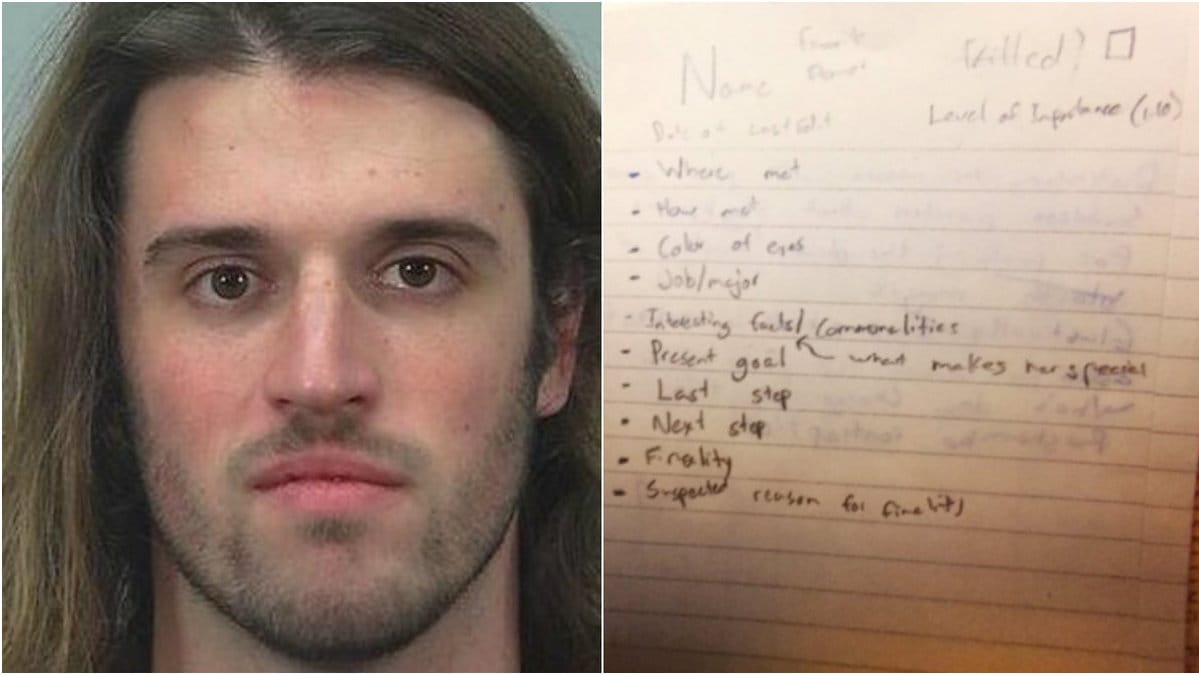 Name
Killed? ☐
Level of Importance (1-10)
- Where met
- How met
- Color of eyes
- Job/major
- Interesting facts/commonalities
- Present goal what makes her special
- Last step
- Next step
- Finality
- Suspected reason for finality